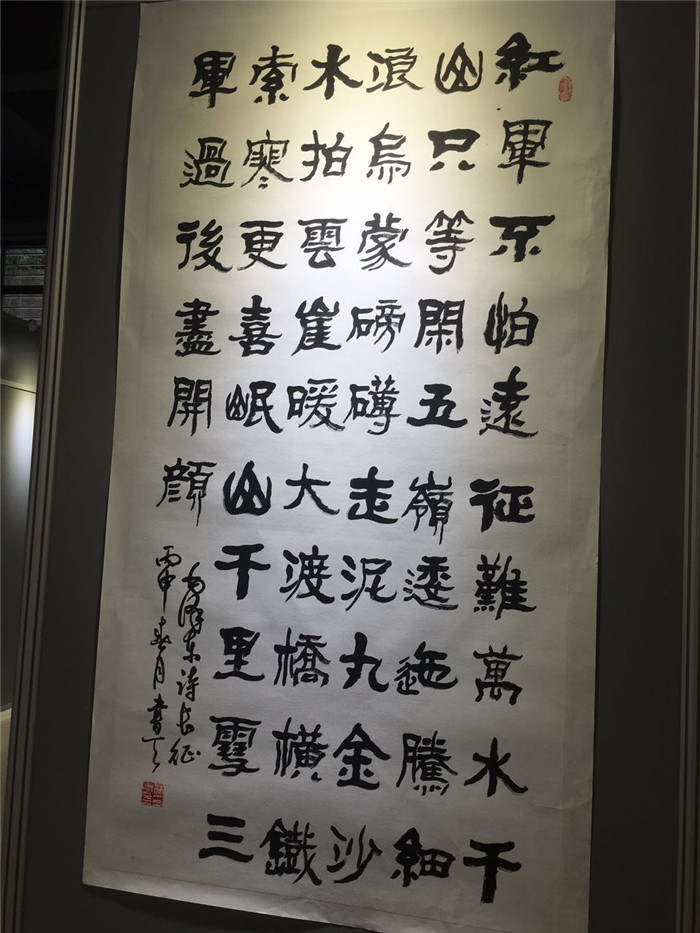 紅軍不怕遠征難萬水千
山只等閑五嶺逶迤騰細
浪烏蒙磅礴走泥丸金沙
水拍雲崖暖大渡橋橫鐵
索寒更喜岷山千里雪三
軍過後盡開顏
毛澤東詩長征
丙申春月書